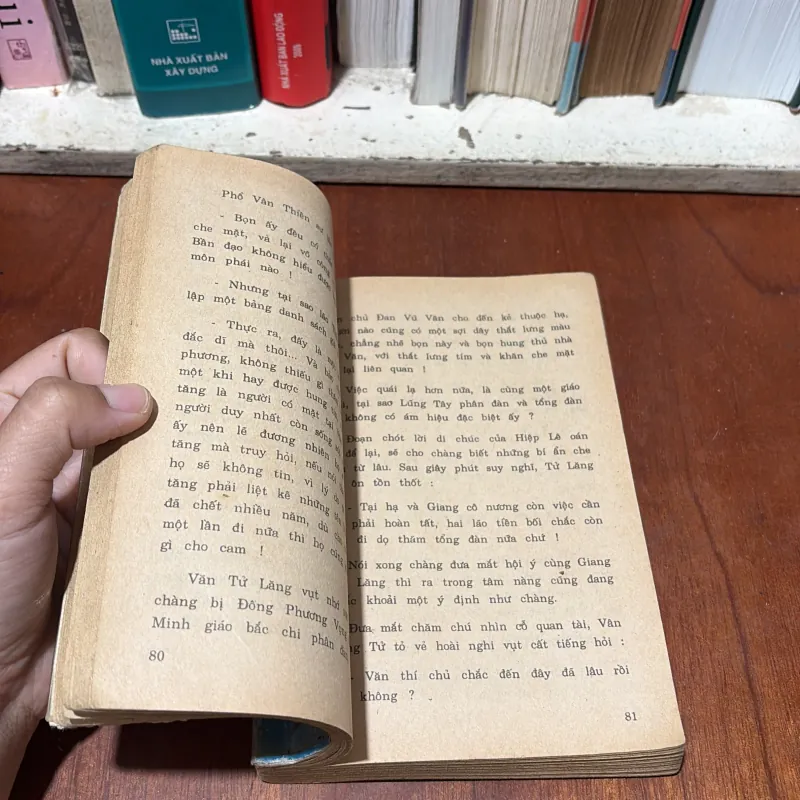 NHÀ XUẤT BẢN
XÂY DỰNG
NHÀ XUẤT BẢN LAO ĐỘNG
2005
Phổ Văn Thiền sư
- Bọn ấy đều có
che mặt, và lại võ công
Bần đạo không hiểu được
môn phái nào !
- Nhưng tại sao lão
lập một bảng danh sách
- Thực ra, đấy là
đắc dĩ mà thôi... Và
phương, không thiếu gì
một khi hay được hung
tăng là người có mặt tại
người duy nhất còn sống
ấy nên lẽ đương nhiên
tăng mà truy hỏi, nếu nói
họ sẽ không tin, vì lý
tăng phải liệt kê những
đã chết nhiều năm, dù
một lần đi nữa thì họ cũng
gì cho cam !
Văn Tử Lăng vụt nhớ
chàng bị Đông Phương
Minh giáo bắc chi phân
80
chủ Đan Vũ Vân cho đến kẻ thuộc hạ,
nào cũng có một sợi dây thắt lưng màu
chẳng nhẽ bọn này và bọn hung thủ nhà
Văn, với thắt lưng tím và khăn che mặt
lại liên quan !
Việc quái lạ hơn nữa, là cùng một giáo
tại sao Lũng Tây phân đàn và tổng đàn
không có ám hiệu đặc biệt ấy ?
Đoạn chót lời di chúc của Hiệp Lê oán
để lại, sẽ cho chàng biết những bí ẩn che
từ lâu. Sau giây phút suy nghĩ, Tử Lăng
ôn tồn thốt :
- Tại hạ và Giang cô nương còn việc cần
phải hoàn tất, hai lão tiền bối chắc còn
đi dọ thám tổng đàn nữa chứ !
Nói xong chàng đưa mắt hội ý cùng Giang
Lăng thì ra trong tâm nàng cũng đang
khoải một ý định như chàng.
Đưa mắt chăm chú nhìn cỗ quan tài, Vân
Tử tỏ vẻ hoài nghi vụt cất tiếng hỏi :
- Văn thí chủ chắc đến đây đã lâu rồi
không ?
81